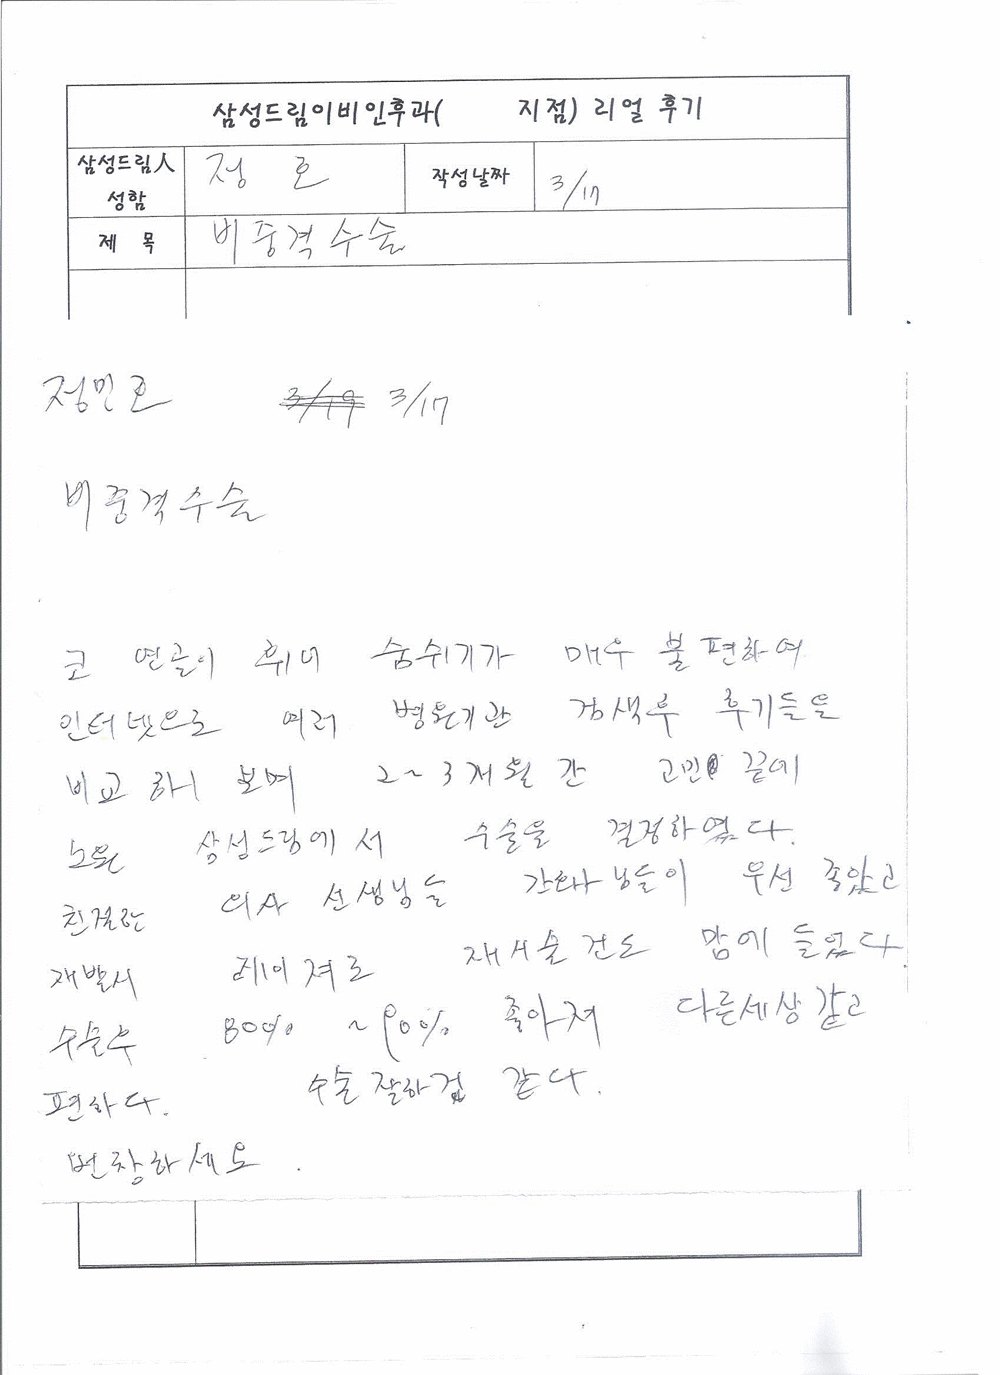 삼성드림이비인후과( 지점) 리얼 후기
삼성드림人 성함 정 호 작성날짜 3/17
제 목 비중격수술
정민호 3/19 3/17
비중격수술
코 연골이 휘어 숨쉬기가 매우 불편하여
인터넷으로 여러 병원기관 검색후 후기들을
비교 해 보며 2~3개월 간 고민 끝에
노원 삼성드림에서 수술을 결정하였다.
친절한 의사 선생님들 간호사님들이 우선 좋았고
재발시 레이져로 재시술건도 맘에 들었다
수술후 80% ~90% 좋아져 다른세상같고
편하다. 수술 잘한것 같다.
번창하세요.